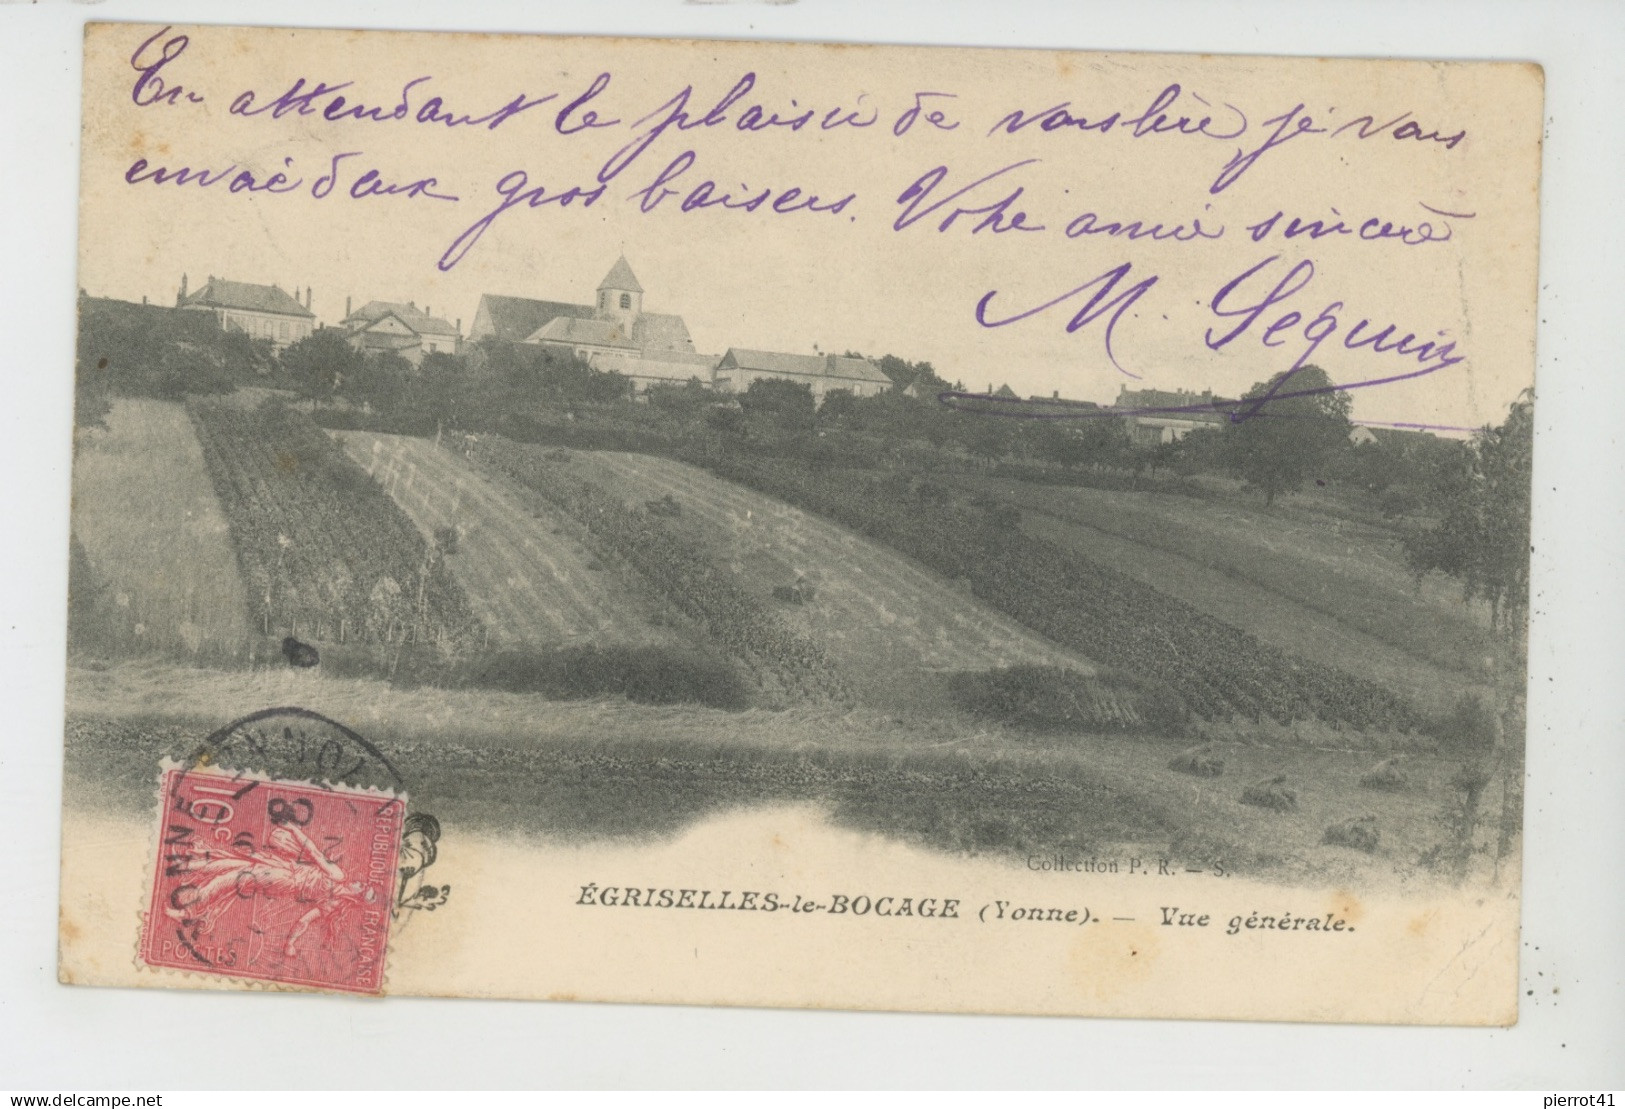 En attendant le plaisir de vous lire je vous
envoie deux gros baisers. Votre amie sincère
M. Seguin
Collection P. R. — S.
ÉGRISELLES-le-BOCAGE (Yonne). — Vue générale.
10c
REPUBLIQUE FRANÇAISE
POSTES
YONNE
pierrot41